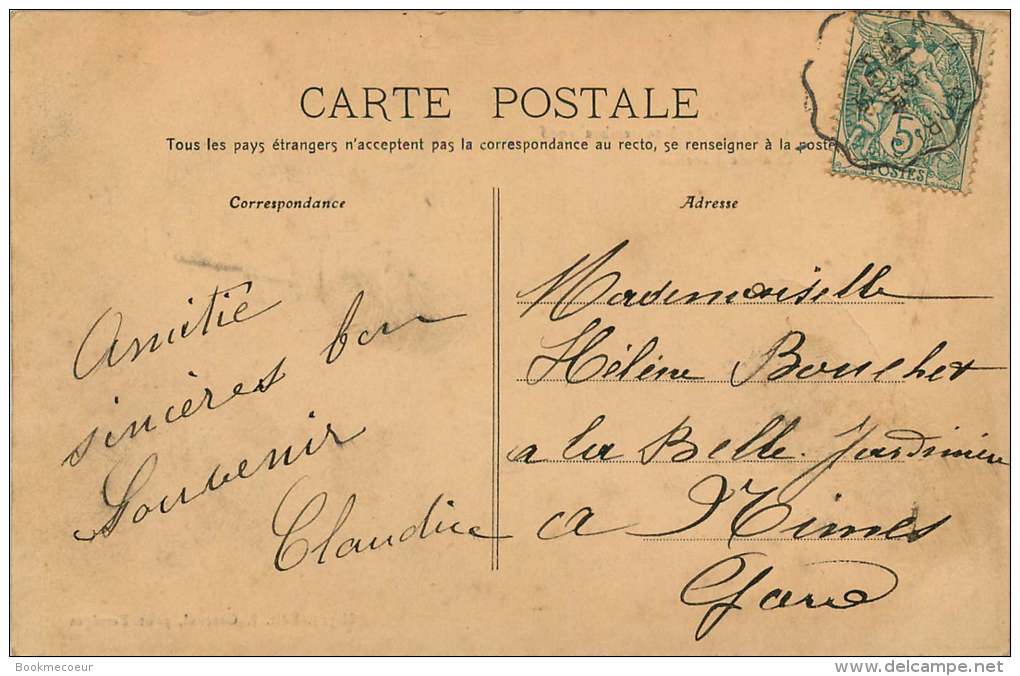 CARTE POSTALE
Tous les pays étrangers n'acceptent pas la correspondance au recto, se renseigner à la poste
Correspondance
Adresse
5
POSTES
Amitie
sincères bon
Souvenir
Claudice
Mademoiselle
Hélène Bouchet
a la Belle Jardiniere
a Nimes
Gard
Bookmecoeur
delcampe.net